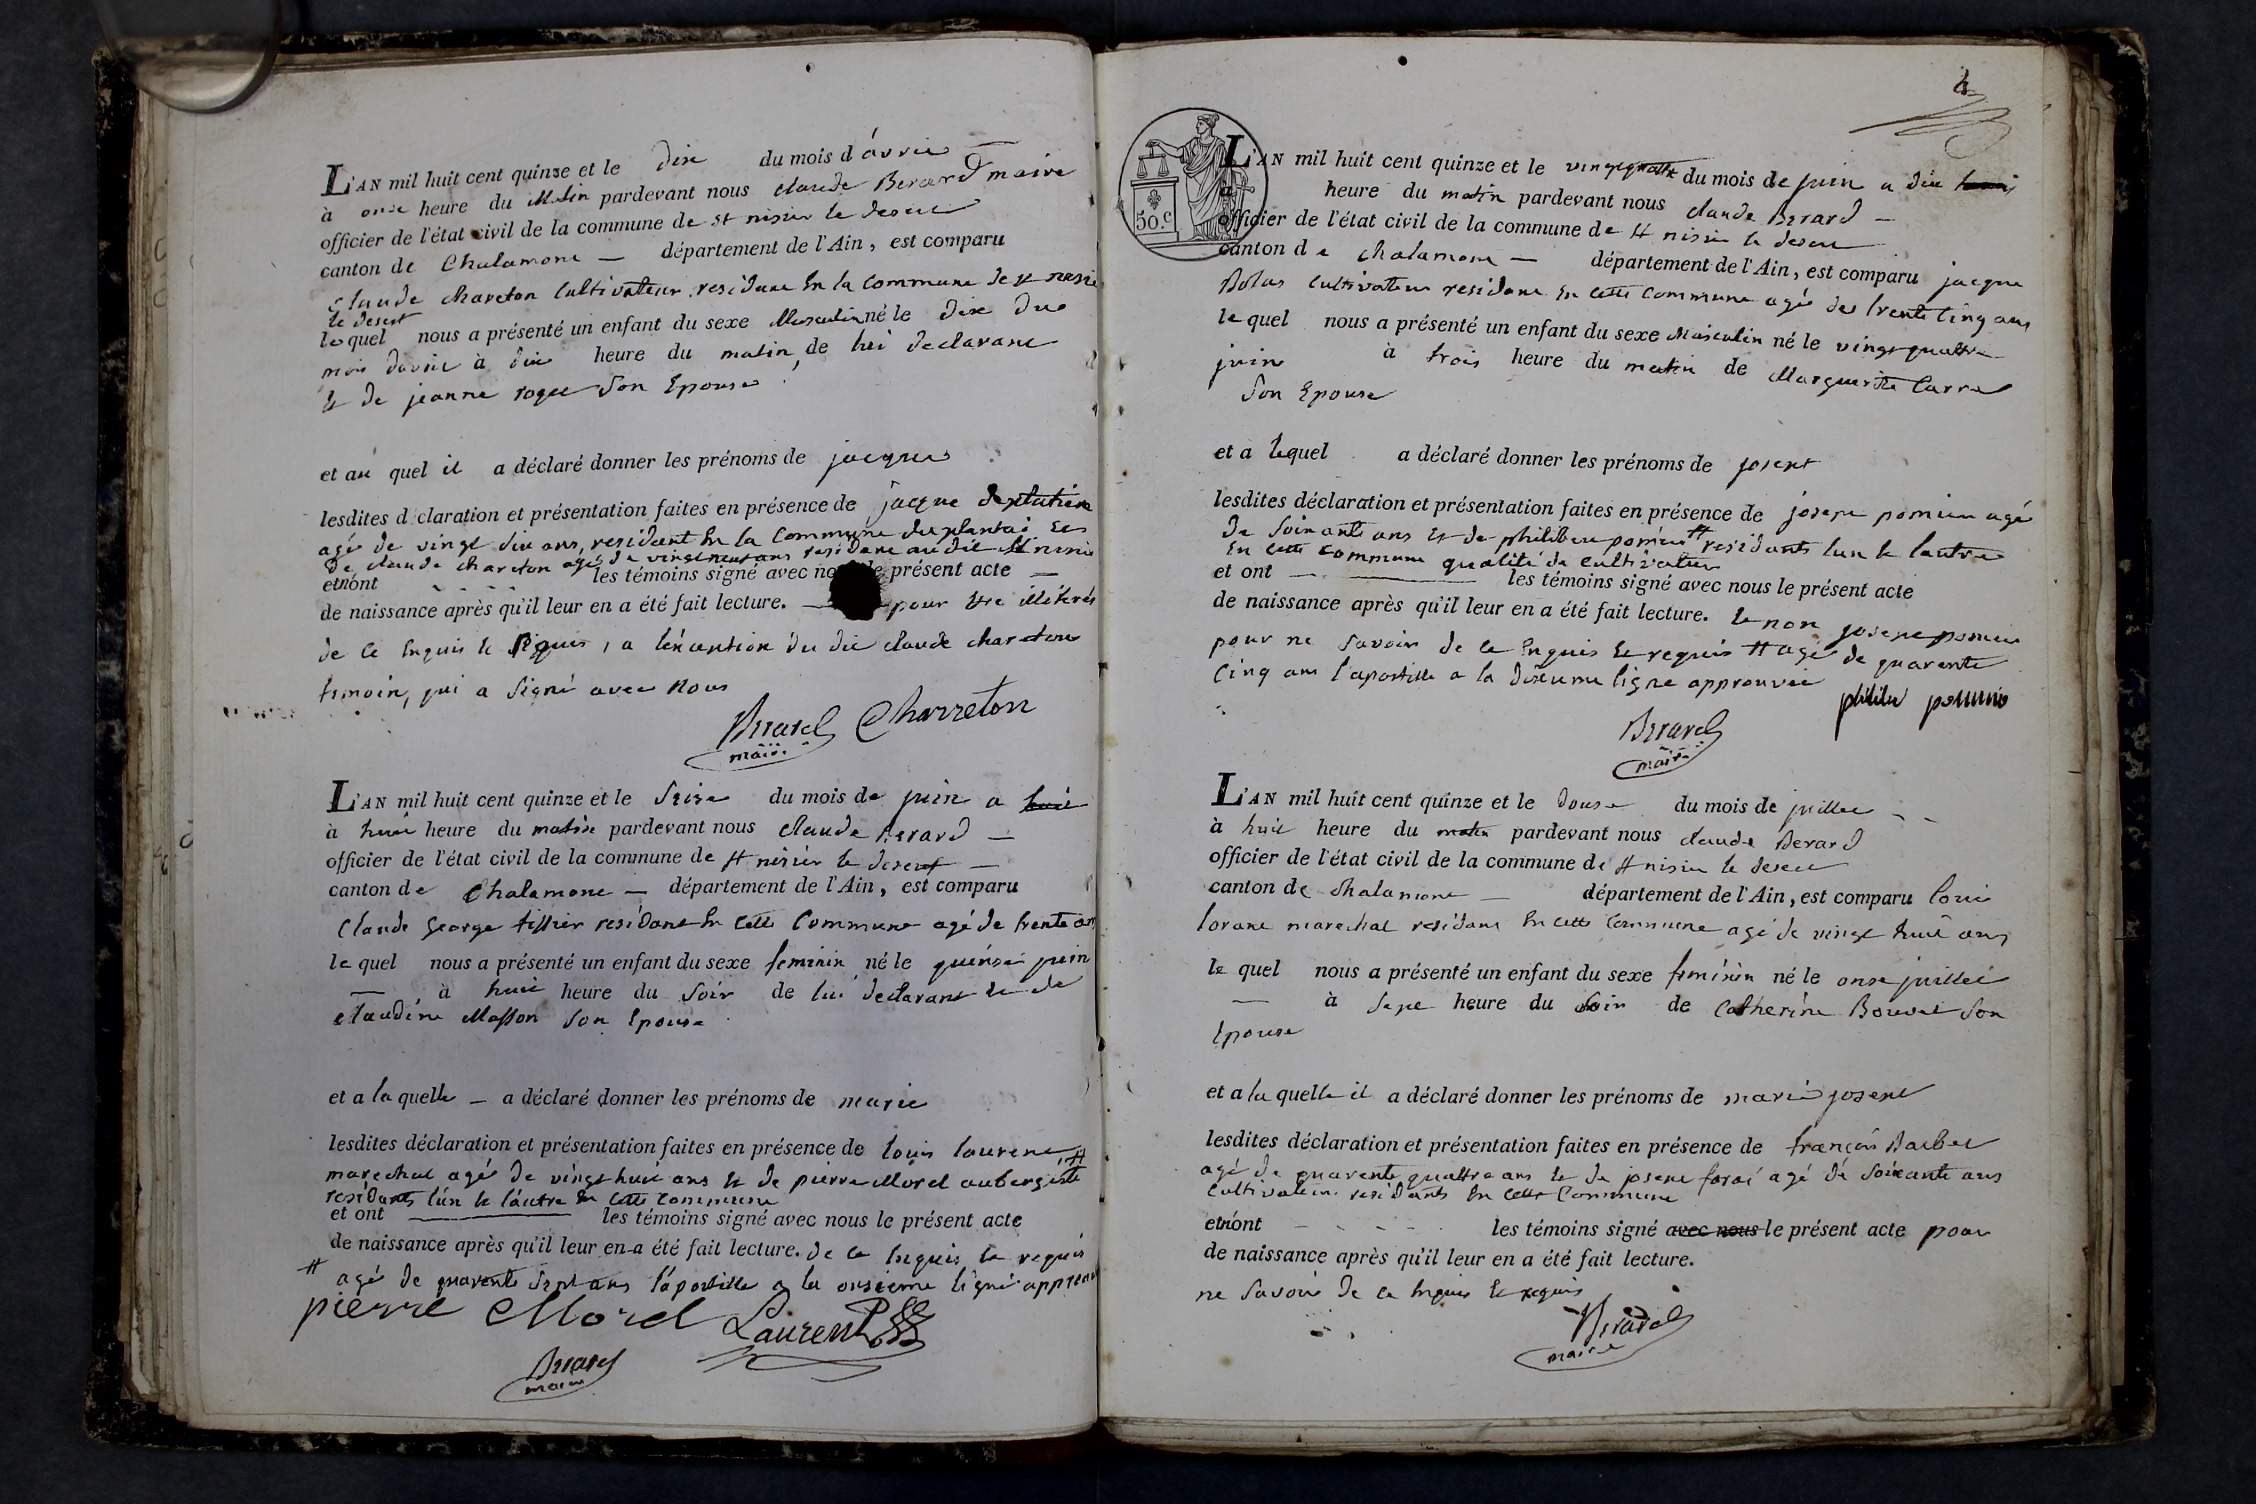 L'AN mil huit cent quinze et le dix du mois d'avril
à onze heure du Matin pardevant nous claude Berard maire
officier de l'état civil de la commune de st nisier le desert
canton de Chalamont — département de l'Ain, est comparu
Claude chareton Cultivateur residant En la Commune de st nisie
le desert
lequel nous a présenté un enfant du sexe Masculin né le dix du
mois davril à dix heure du matin, de lui declarant
& de jeanne roger Son Epouse
et au quel il a déclaré donner les prénoms de jacques
lesdites déclaration et présentation faites en présence de jacque
agé de vingt dix ans, residant En la Commune du plantai Et
de claude chareton agé de vingt neuf ans residant audit St nisie
et n'ont les témoins signé avec le présent acte —
de naissance après qu'il leur en a été fait lecture. — pour Etre illiteres
de Ce Enquis & Requis, a lexception du dit claude chareton
temoin, qui a Signé avec Nous
Berard Charreton
maire
L'AN mil huit cent quinze et le Seize du mois de juin a huit
à huit heure du matin pardevant nous claude Berard —
officier de l'état civil de la commune de st nisier le desert —
canton de Chalamont — département de l'Ain, est comparu
Claude George tissier residant En cette Commune agé de trente ans
le quel nous a présenté un enfant du sexe feminin né le quinse juin
— à huit heure du Soir de lui declarant & de
claudine Masson Son Epouse
et a la quelle — a déclaré donner les prénoms de marie
lesdites déclaration et présentation faites en présence de louis laurent #
marechal agé de vingt huit ans & de pierre Morel aubergiste
residants lun & lautre En cette Commune
et ont — les témoins signé avec nous le présent acte
de naissance après qu'il leur en a été fait lecture. de Ce Enquis & requis
# agé de quarente Sept ans lapostille a la onsieme ligne approuv
pierre Morel Laurent
Berard
maire
4
50.c
L'AN mil huit cent quinze et le vingt quatre du mois de juin a dix
à heure du matin pardevant nous claude Berard —
officier de l'état civil de la commune de st nisier le desert
canton de chalamont — département de l'Ain, est comparu jacque
Bolas Cultivateur residant En cette Commune agé des trente Cinq ans
le quel nous a présenté un enfant du sexe Masculin né le vingt quattre
juin à trois heure du matin de Marguerite Carra
Son Epouse
et a lequel a déclaré donner les prénoms de josept
lesdites déclaration et présentation faites en présence de josept pomier agé
de Soixante ans & de philibert pomier # residants lun & lautre
En cette Commune qualité de Cultivateur
et ont — les témoins signé avec nous le présent acte
de naissance après qu'il leur en a été fait lecture. & non josept pomier
pour ne Savoir de Ce Enquis & requis # agé de quarente
Cinq ans l'apostille a la dixieme ligne approuvée
Berard
maire
L'AN mil huit cent quinze et le douse du mois de juillet
à huit heure du matin pardevant nous claude Berard
officier de l'état civil de la commune de st nisier le desert
canton de Chalamont — département de l'Ain, est comparu loui
lorant marechal residant En cette Commune agé de vingt huit ans
le quel nous a présenté un enfant du sexe feminin né le onse juillet
— à Sept heure du Soir de Catherine Bouvet Son
Epouse
et a la quelle il a déclaré donner les prénoms de marie josept
lesdites déclaration et présentation faites en présence de françois Barbet
agé de quarente quattre ans & de josept forai agé de Soixante ans
Cultivateur residants En cette Commune
et n'ont les témoins signé avec nous le présent acte pour
de naissance après qu'il leur en a été fait lecture.
ne Savoir de Ce Enquis & requis
Berard
maire